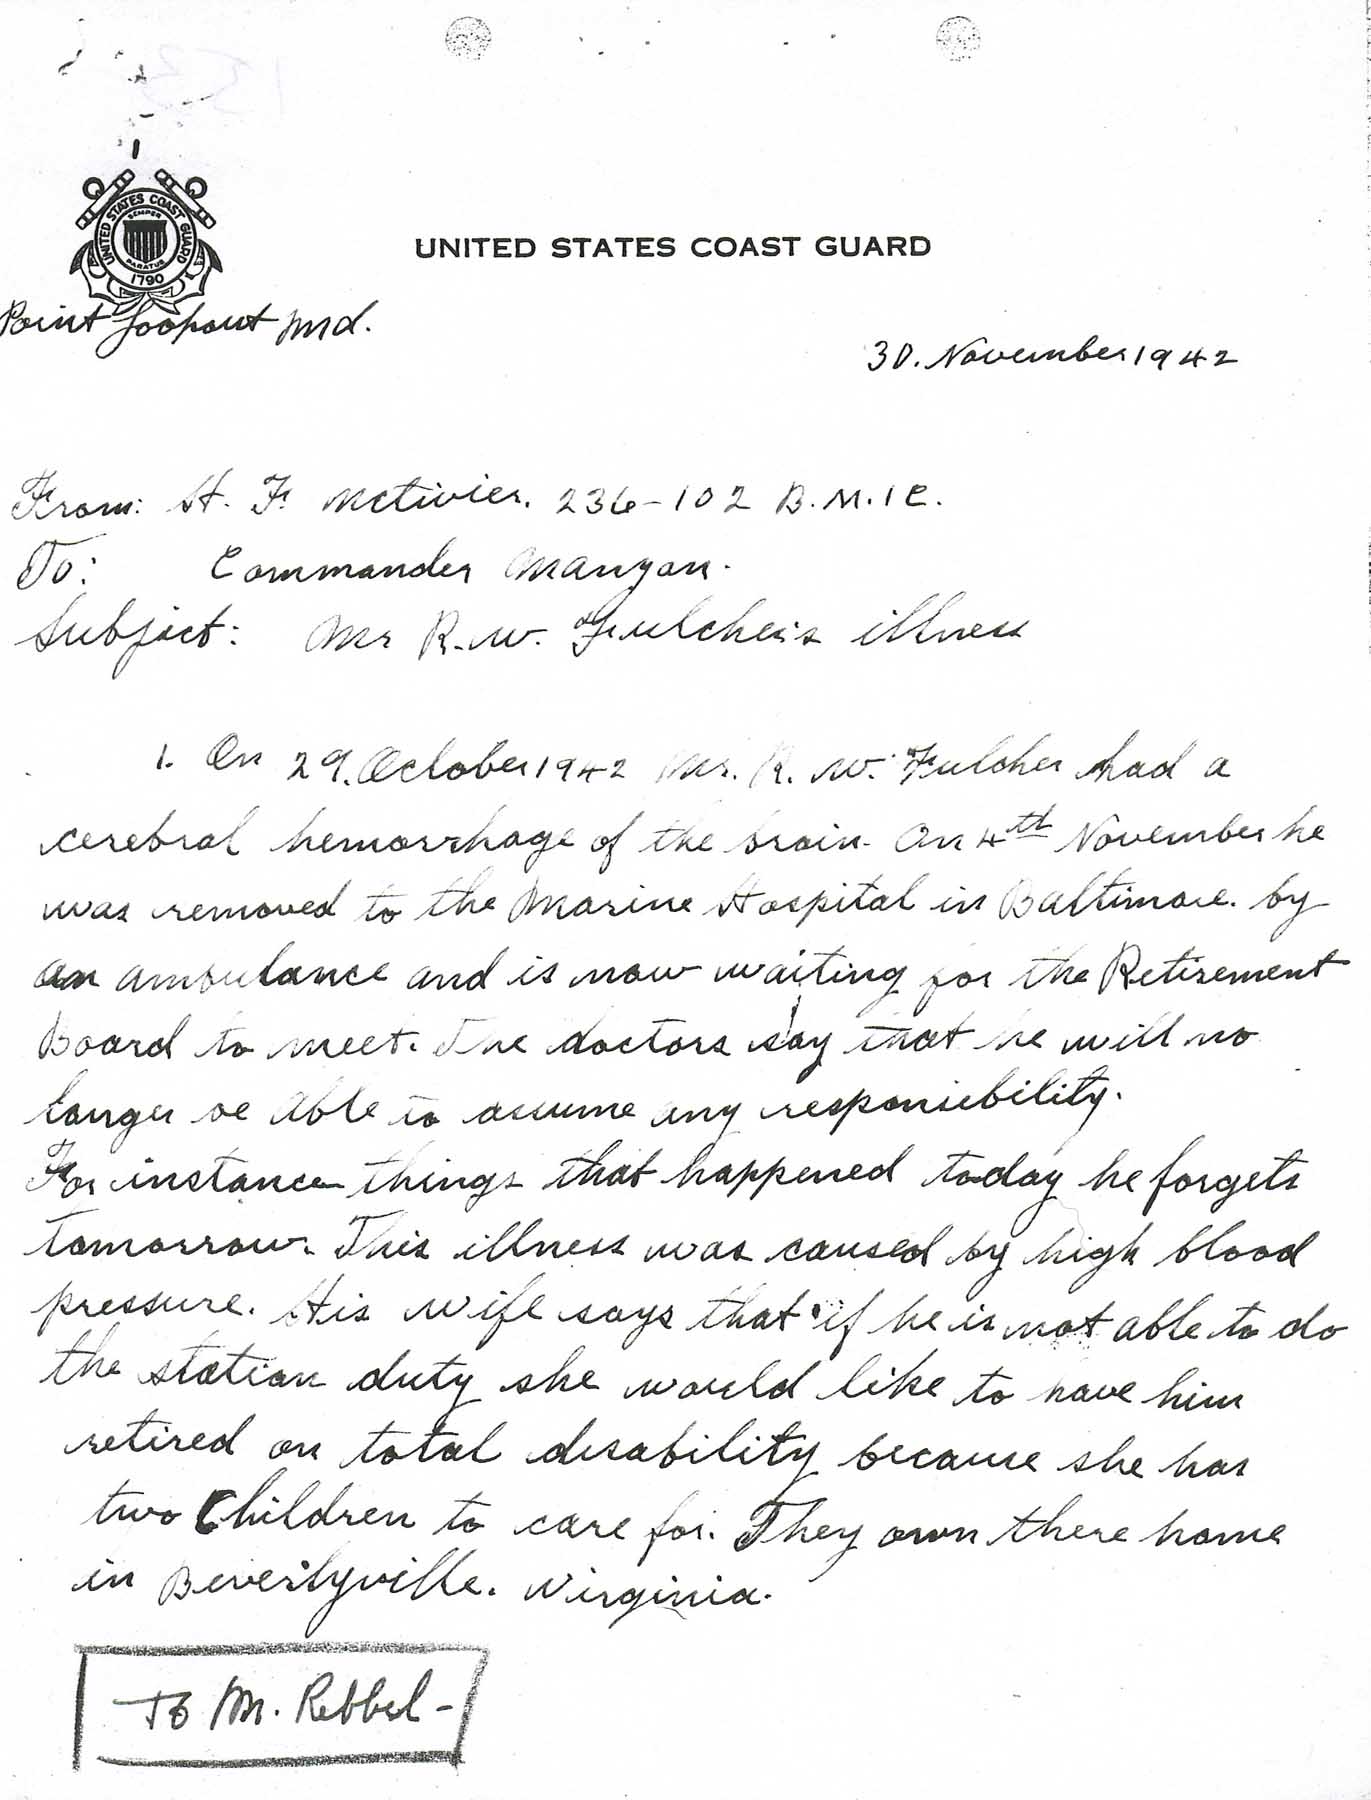 UNITED STATES COAST GUARD
SEMPER
PARATUS
1790
UNITED STATES COAST GUARD
Point Lookout Md.
30. November 1942
From: H. F. McTivier. 236-102 B.M.1C.
To: Commander Manyon.
Subject: Mr R. W. Fulcher's illness
1. On 29. October 1942 Mr. R. W. Fulcher had a
cerebral hemorrhage of the brain. On 4th November he
was removed to the Marine Hospital in Baltimore. by
an ambulance and is now waiting for the Retirement
Board to meet. The doctors say that he will no
longer be able to assume any responsibility.
For instance things that happened today he forgets
tomorrow. This illness was caused by high blood
pressure. His wife says that if he is not able to do
the station duty she would like to have him
retired on total disability because she has
two Children to care for. They own there home
in Beverlyville. Virginia.
To Mr. Rebbel -